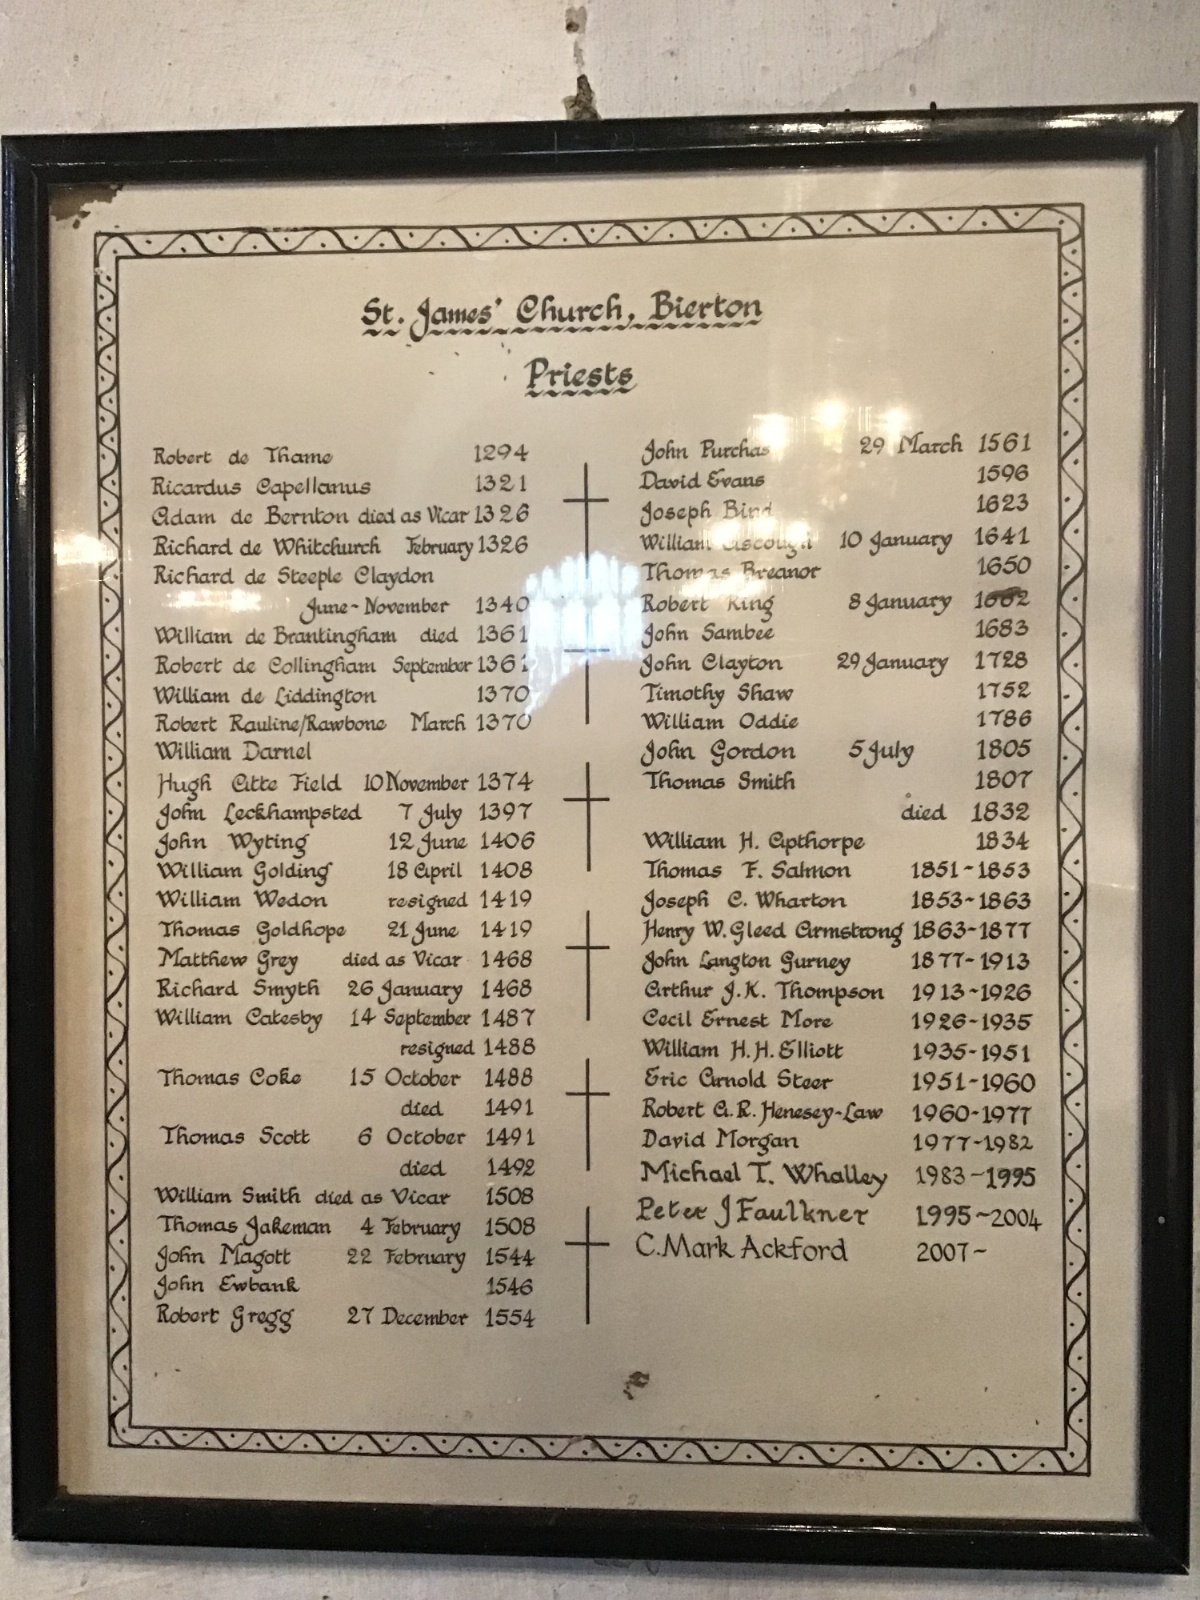 St. James' Church, Bierton
Priests
Robert de Thame 1294
Ricardus Capellanus 1321
Adam de Bernton died as Vicar 1326
Richard de Whitchurch February 1326
Richard de Steeple Claydon
June- November 1340
William de Brantingham died 1361
Robert de Collingham September 1361
William de Liddington 1370
Robert Rauline/Rawbone March 1370
William Darnel
Hugh Atte Field 10 November 1374
John Leckhampsted 7 July 1397
John Wyting 12 June 1406
William Golding 18 April 1408
William Wedon resigned 1419
Thomas Goldhope 21 June 1419
Matthew Grey died as Vicar 1468
Richard Smyth 26 January 1468
William Catesby 14 September 1487
resigned 1488
Thomas Coke 15 October 1488
died 1491
Thomas Scott 6 October 1491
died 1492
William Smith died as Vicar 1508
Thomas Jakeman 4 February 1508
John Magott 22 February 1544
John Ewbank 1546
Robert Gregg 27 December 1554
John Purchas 29 March 1561
David Evans 1596
Joseph Bind 1623
William Ascough 10 January 1641
Thomas Breanor 1650
Robert King 8 January 1662
John Sambee 1683
John Clayton 29 January 1728
Timothy Shaw 1752
William Oddie 1786
John Gordon 5 July 1805
Thomas Smith 1807
died 1832
William H. Apthorpe 1834
Thomas F. Salmon 1851-1853
Joseph C. Wharton 1853-1863
Henry W. Gleed Armstrong 1863-1877
John Langton Gurney 1877-1913
Arthur J.K. Thompson 1913-1926
Cecil Ernest More 1926-1935
William H.H. Elliott 1935-1951
Eric Arnold Steer 1951-1960
Robert A.R. Henesey-Law 1960-1977
David Morgan 1977-1982
Michael T. Whalley 1983-1995
Peter J Faulkner 1995-2004
C. Mark Ackford 2007-